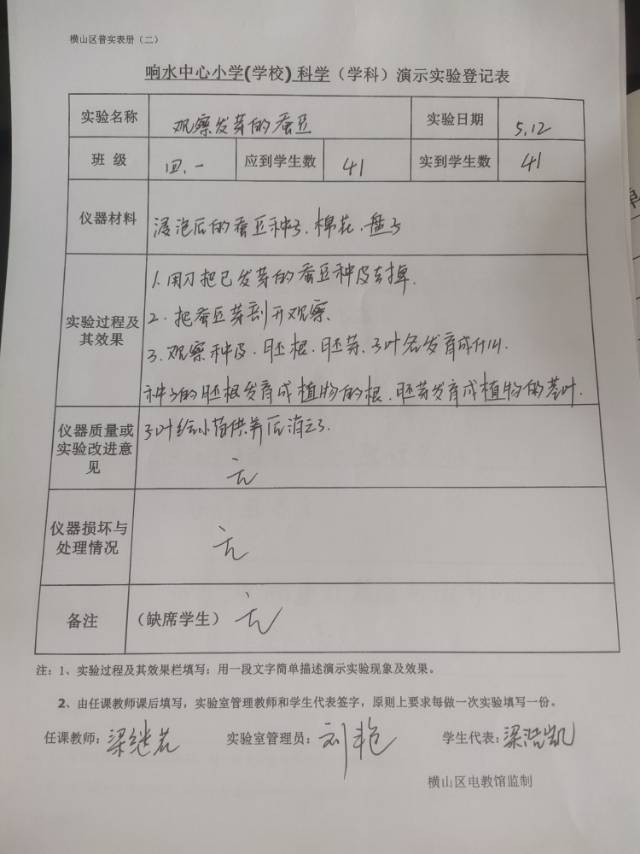 横山区普实表册（二）
响水中心小学(学校) 科学（学科）演示实验登记表
实验名称 观察发芽的蚕豆 实验日期 5.12
班 级 四.一 应到学生数 41 实到学生数 41
仪器材料 浸泡后的蚕豆种子、棉花、盘子
实验过程及其效果
1.用刀把已发芽的蚕豆种皮去掉.
2.把蚕豆芽剖开观察.
3.观察种皮、胚根、胚芽、子叶各发育成什么.
种子的胚根发育成植物的根，胚芽发育成植物的茎叶.
子叶给小苗供养后消之了.
仪器质量或实验改进意见 无
仪器损坏与处理情况 无
备注 （缺席学生） 无
注：1、实验过程及其效果栏填写：用一段文字简单描述演示实验现象及效果。
2、由任课教师课后填写，实验室管理教师和学生代表签字，原则上要求每做一次实验填写一份。
任课教师：梁继 实验室管理员：刘艳 学生代表：梁浩凯
横山区电教馆监制